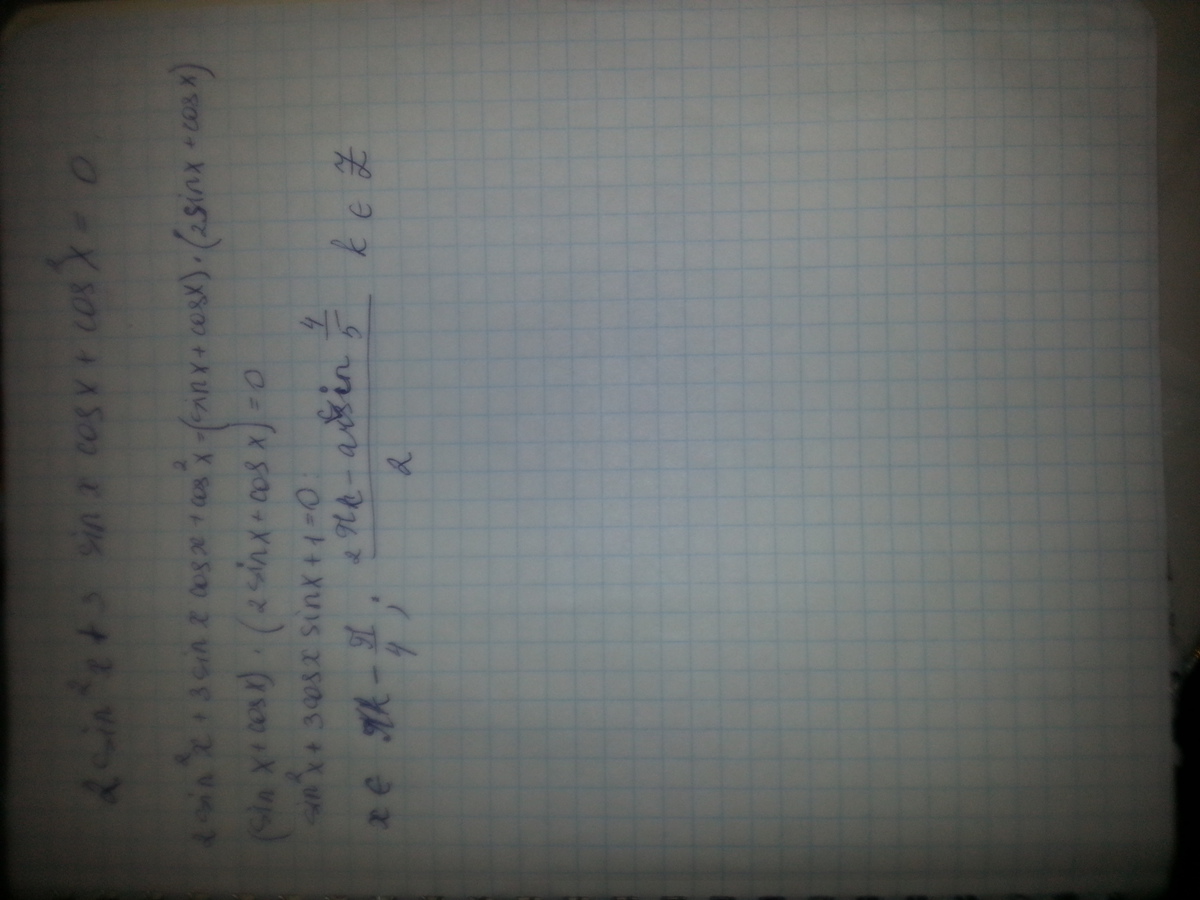 2 sin² x + 3 sin x cos x + cos² x = 0
2 sin² x + 3 sin x cos x + cos² x = (sin x + cos x) · (2 sin x + cos x)
(sin x + cos x) · (2 sin x + cos x) = 0
sin² x + 3 cos x sin x + 1 = 0
x ∈ πk − π/4 ; (2πk − arcsin 4/5)/2 k ∈ Z